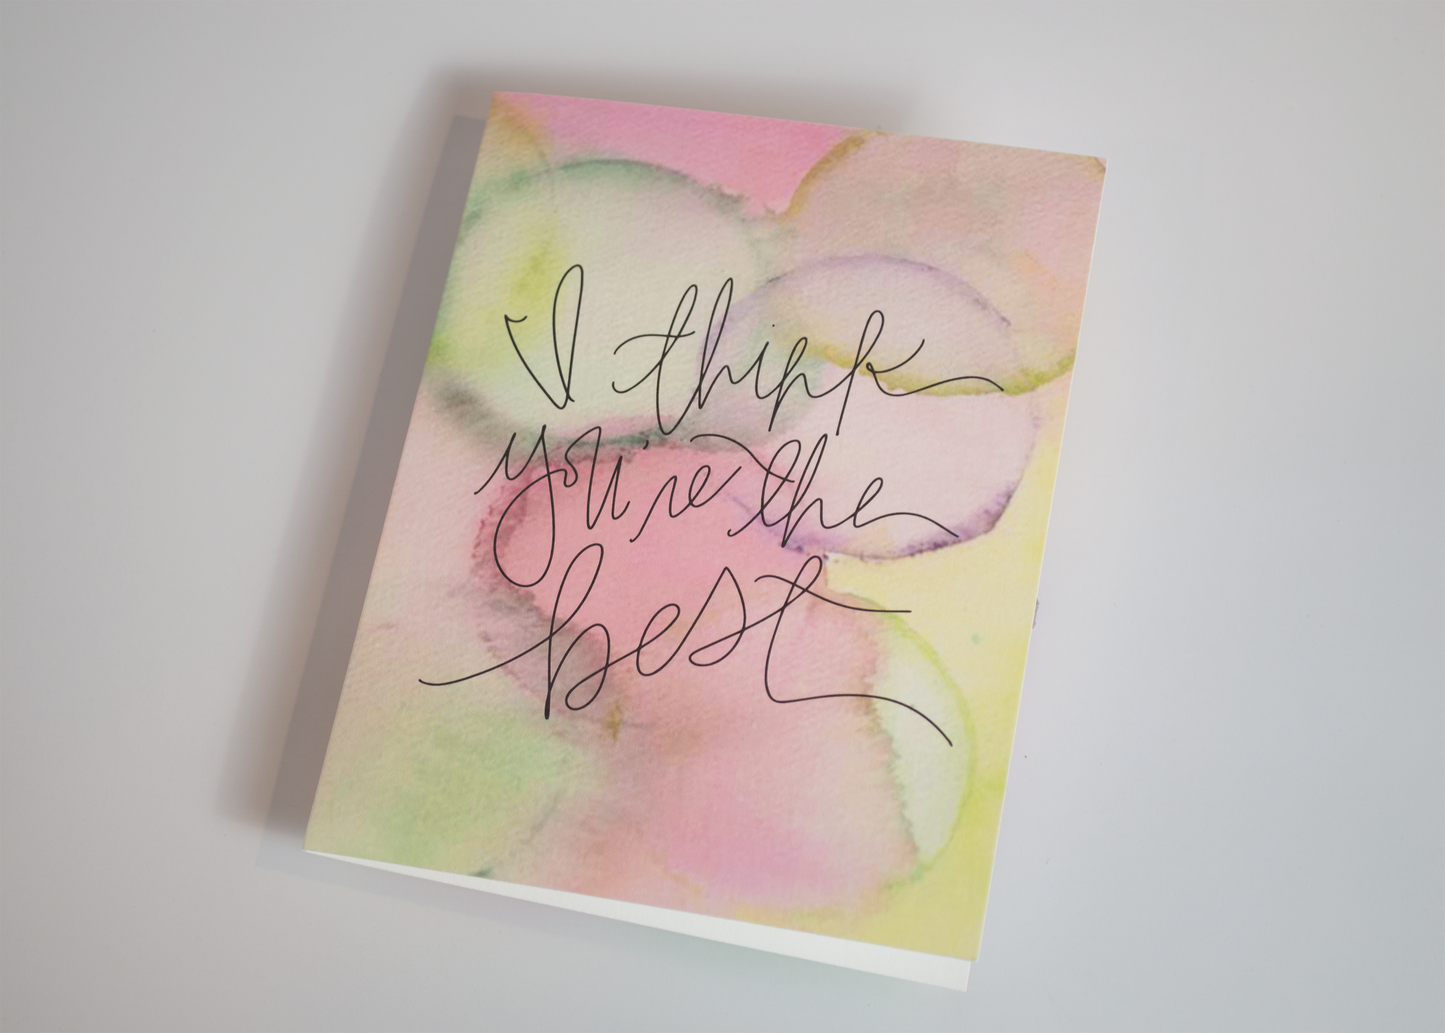 I think
you're the
best